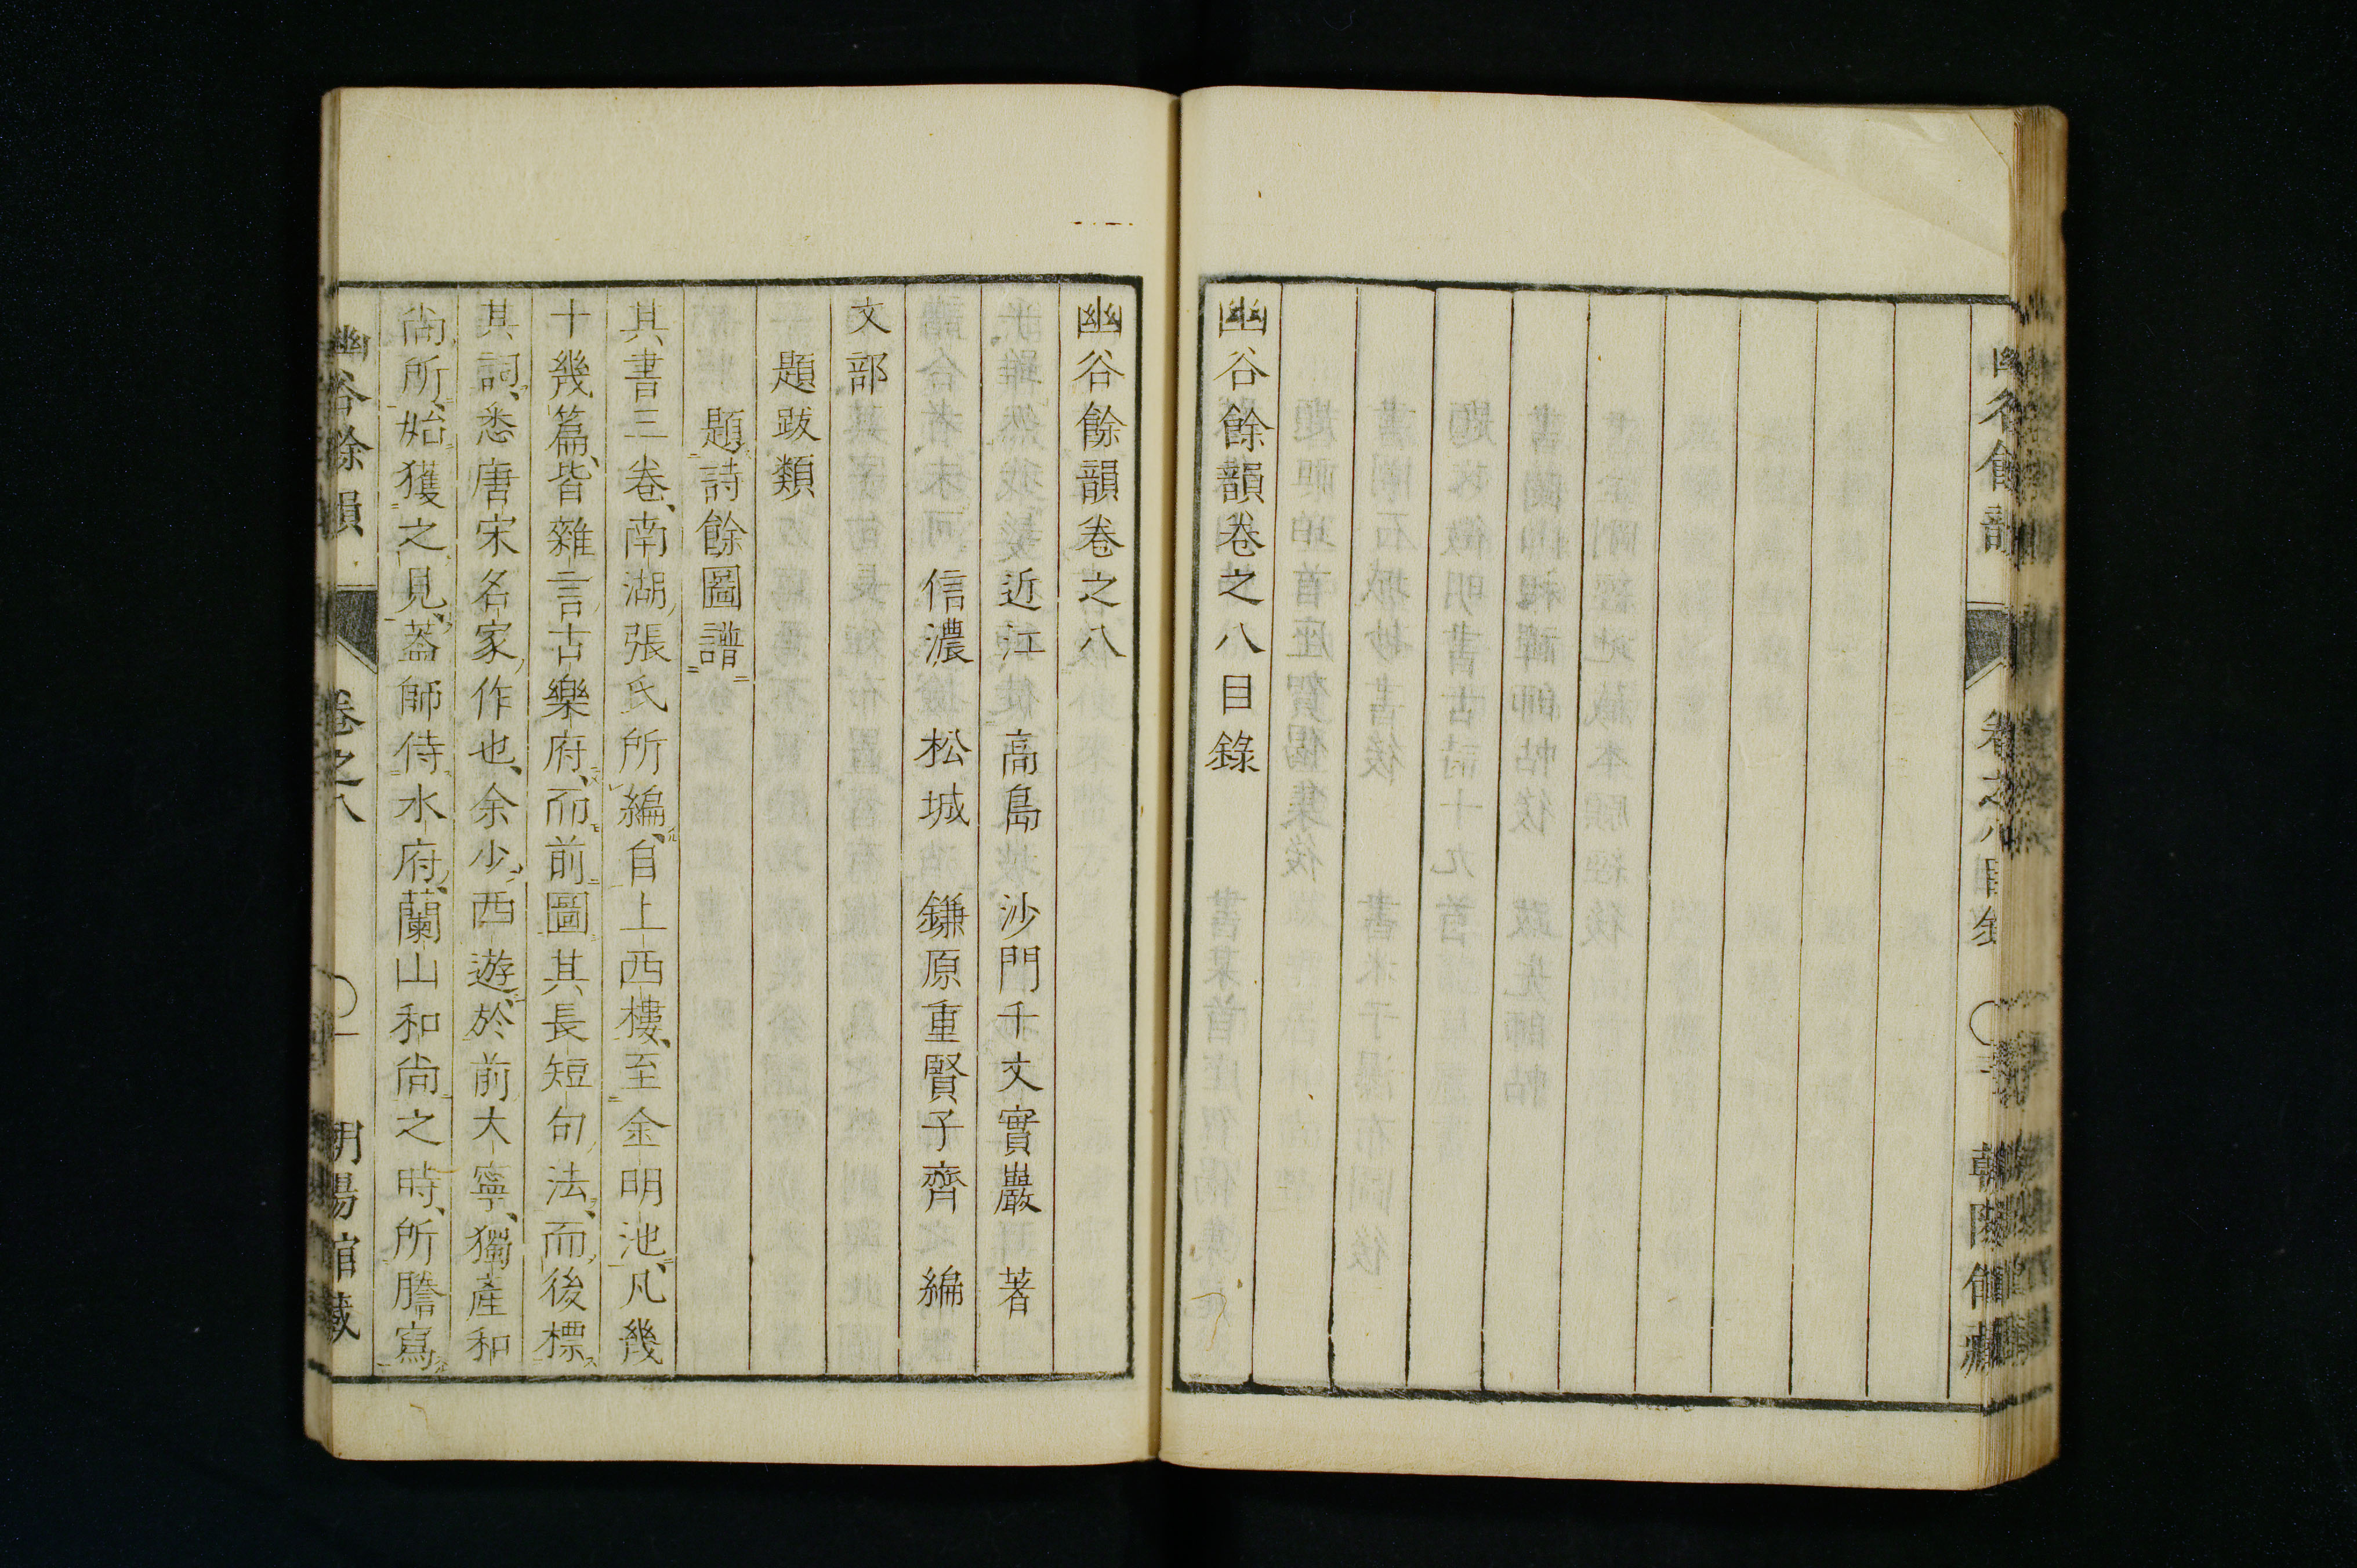 幽谷餘韻卷之八目錄
幽谷餘韻卷之八
近江 高島 沙門千丈實巖 著
信濃 松城 鎌原重賢子齊 編
文部
題跋類
題詩餘圖譜
其書三卷、南湖張氏所編、自上西樓、至金明池、凡幾
十幾篇、皆雜言古樂府、而前圖其長短句法、而後標
其詞、悉唐宋名家作也、余少西遊、於前大寧、獨產和
尚所、始獲之見、蓋師侍水府、蘭山和尚之時、所謄寫
幽谷餘韻 卷之八 〇一 朝陽館藏